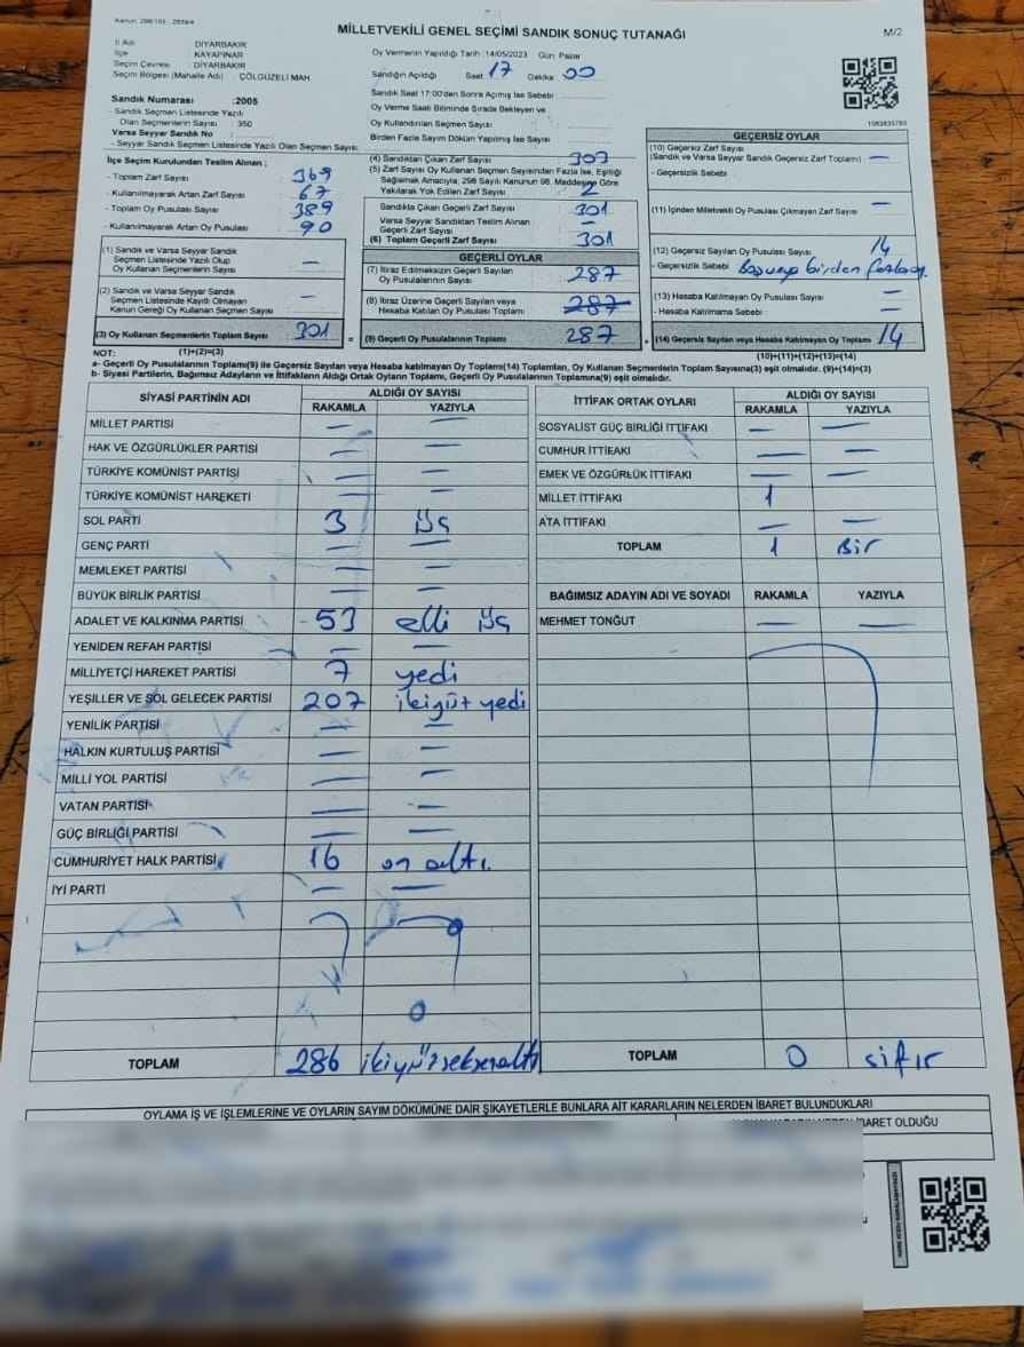 MİLLETVEKİLİ GENEL SEÇİMİ SANDIK SONUÇ TUTANAĞI
M/2
İl Adı : DİYARBAKIR
İlçe : KAYAPINAR
Seçim Çevresi : DİYARBAKIR
Seçim Bölgesi (Mahalle Adı) : ÇÖLGÜZELİ MAH.
Sandık Numarası :2005
Sandık Seçmen Listesinde Yazılı
Olan Seçmenlerin Sayısı : 350
Varsa Seyyar Sandık No :
- Seyyar Sandık Seçmen Listesinde Yazılı Olan Seçmen Sayısı:
Oy Vermenin Yapıldığı Tarih :14/05/2023 Gün: Pazar
Sandığın Açıldığı Saat: 17 Dakika: 00
Sandık Saat 17:00'den Sonra Açılmış İse Sebebi :
Oy Verme Saati Bitiminde Sırada Bekleyen ve
Oy Kullandırılan Seçmen Sayısı :
Birden Fazla Sayım Döküm Yapılmış İse Sayısı :
İlçe Seçim Kurulundan Teslim Alınan :
- Toplam Zarf Sayısı : 369
- Kullanılmayarak Artan Zarf Sayısı : 67
- Toplam Oy Pusulası Sayısı : 389
- Kullanılmayarak Artan Oy Pusulası : 90
(1) Sandık ve Varsa Seyyar Sandık
Seçmen Listesinde Yazılı Olup
Oy Kullanan Seçmenlerin Sayısı —
(2) Sandık ve Varsa Seyyar Sandık
Seçmen Listesinde Kayıtlı Olmayan
Kanun Gereği Oy Kullanan Seçmenlerin Sayısı —
(3) Oy Kullanan Seçmenlerin Toplam Sayısı 301 =
(1)+(2)=(3)
(4) Sandıktan Çıkan Zarf Sayısı 303
(5) Zarf Sayısı Oy Kullanan Seçmen Sayısından Fazla İse, Eşitliği
Sağlamak Amacıyla; 298 Sayılı Kanunun 98. Maddesine Göre
Yakılarak Yok Edilen Zarf Sayısı 2
Sandıkta Çıkan Geçerli Zarf Sayısı 301
Varsa Seyyar Sandıktan Teslim Alınan
Geçerli Zarf Sayısı —
(6) Toplam Geçerli Zarf Sayısı 301
GEÇERLİ OYLAR
(7) İtiraz Edilmeksizin Geçerli Sayılan
Oy Pusulalarının Sayısı 287
(8) İtiraz Üzerine Geçerli Sayılan veya
Hesaba Katılan Oy Pusulası Toplamı 287
(9) Geçerli Oy Pusulalarının Toplamı 287 +
GEÇERSİZ OYLAR
(10) Geçersiz Zarf Sayısı
(Sandık ve Varsa Seyyar Sandık Geçersiz Zarf Toplamı) —
- Geçersizlik Sebebi
(11) İçinden Milletvekili Oy Pusulası Çıkmayan Zarf Sayısı —
(12) Geçersiz Sayılan Oy Pusulası Sayısı 14
- Geçersizlik Sebebi birden fazla
(13) Hesaba Katılmayan Oy Pusulası Sayısı —
- Hesaba Katılmama Sebebi —
(14) Geçersiz Sayılan veya Hesaba Katılmayan Oy Toplamı 14
(10)+(11)+(12)+(13)=(14)
NOT:
a- Geçerli Oy Pusulalarının Toplamı(9) ile Geçersiz Sayılan veya Hesaba katılmayan Oy Toplamı(14) Toplamları, Oy Kullanan Seçmenlerin Toplam Sayısına(3) eşit olmalıdır. (9)+(14)=(3)
b- Siyasi Partilerin, Bağımsız Adayların ve İttifakların Aldığı Ortak Oyların Toplamı, Geçerli Oy Pusulalarının Toplamına(9) eşit olmalıdır.
SİYASİ PARTİNİN ADI ALDIĞI OY SAYISI
RAKAMLA YAZIYLA
MİLLET PARTİSİ — —
HAK VE ÖZGÜRLÜKLER PARTİSİ — —
TÜRKİYE KOMÜNİST PARTİSİ — —
TÜRKİYE KOMÜNİST HAREKETİ — —
SOL PARTİ 3 üç
GENÇ PARTİ — —
MEMLEKET PARTİSİ — —
BÜYÜK BİRLİK PARTİSİ — —
ADALET VE KALKINMA PARTİSİ 53 elli üç
YENİDEN REFAH PARTİSİ — —
MİLLİYETÇİ HAREKET PARTİSİ 7 yedi
YEŞİLLER VE SOL GELECEK PARTİSİ 207 ikiyüz yedi
YENİLİK PARTİSİ — —
HALKIN KURTULUŞ PARTİSİ — —
MİLLİ YOL PARTİSİ — —
VATAN PARTİSİ — —
GÜÇ BİRLİĞİ PARTİSİ — —
CUMHURİYET HALK PARTİSİ 16 on altı
İYİ PARTİ — —
TOPLAM 286 ikiyüzseksenaltı
İTTİFAK ORTAK OYLARI ALDIĞI OY SAYISI
RAKAMLA YAZIYLA
SOSYALİST GÜÇ BİRLİĞİ İTTİFAKI — —
CUMHUR İTTİFAKI — —
EMEK VE ÖZGÜRLÜK İTTİFAKI — —
MİLLET İTTİFAKI 1
ATA İTTİFAKI — —
TOPLAM 1 Bir
BAĞIMSIZ ADAYIN ADI VE SOYADI RAKAMLA YAZIYLA
MEHMET TONĞUT — —
TOPLAM 0 sıfır
OYLAMA İŞ VE İŞLEMLERİNE VE OYLARIN SAYIM DÖKÜMÜNE DAİR ŞİKAYETLERLE BUNLARA AİT KARARLARIN NELERDEN İBARET BULUNDUKLARI
İBARET OLDUĞU